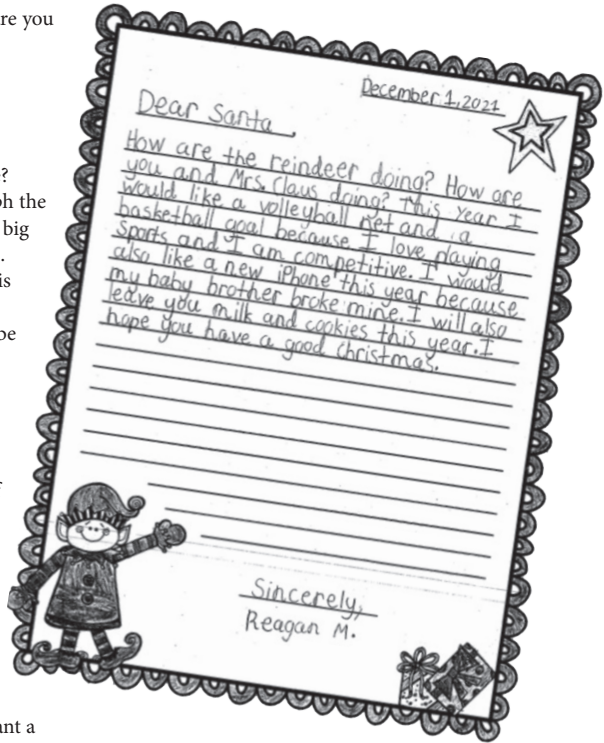 re you
?
ph the
big
.
is
be
f
ant a
December 1, 2021
Dear Santa,
How are the reindeer doing? How are
you and Mrs. Claus doing? This year I
would like a volleyball net and a
basketball goal because I love playing
sports and I am competitive. I would
also like a new iPhone this year because
my baby brother broke mine. I will also
leave you milk and cookies this year. I
hope you have a good Christmas.
Sincerely,
Reagan M.